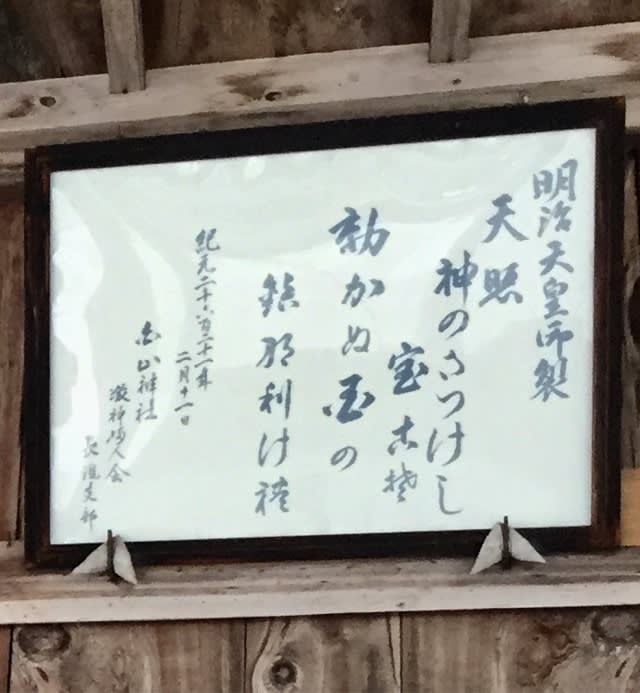 明治天皇御製
天照
神のさつけし
宝古楚
動かぬ国の
鎮那利け禮
紀元二千六百二十一年
二月十一日
白山神社
敬神婦人会
支部